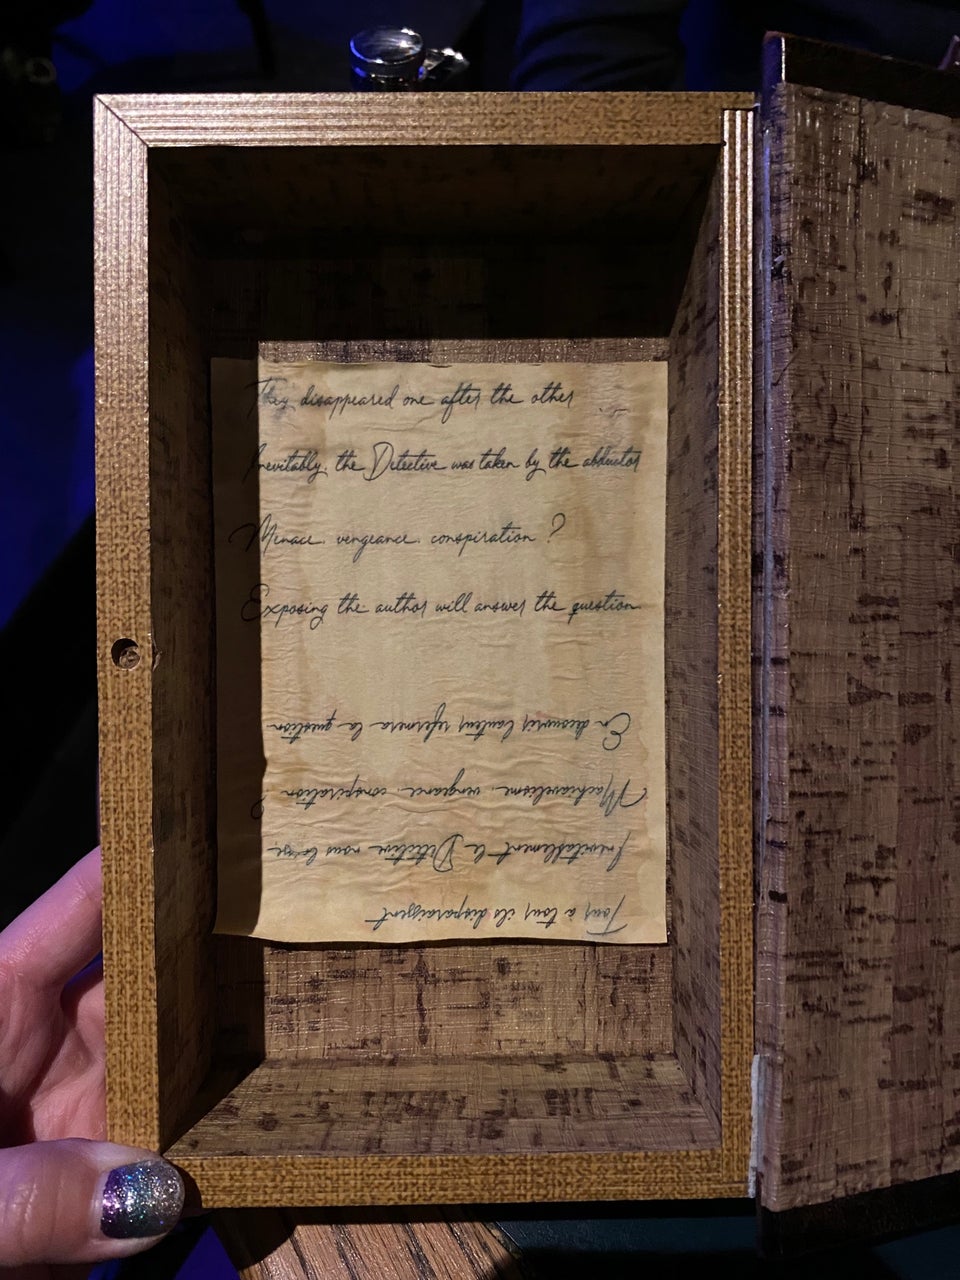 They disappeared one after the other
Inevitably, the Detective was taken by the abductor
Menace, vengeance, conspiration ?
Exposing the author will answer the question
Tour à tour ils disparaissent
Inévitablement le Détective nous laisse
Machiavélisme, vengeance, conspiration ?
En découvrir l'auteur refermera la question